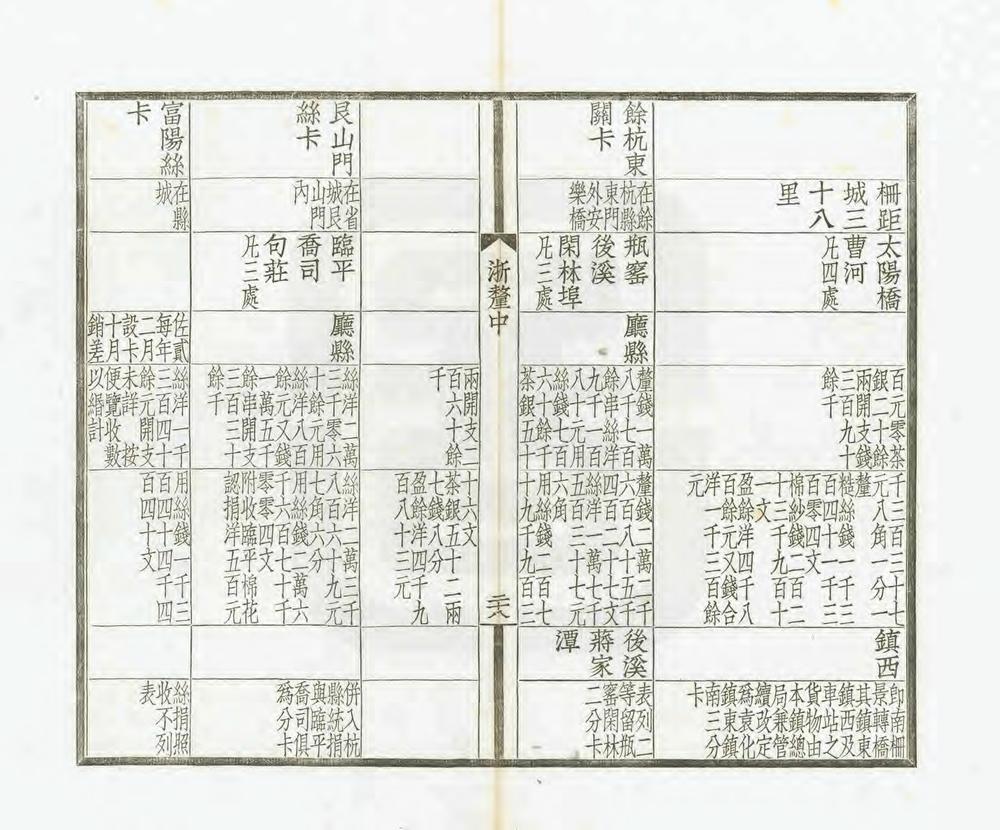 柵距
城三
十八
里
太陽橋
曹河
凡四處
百元零茶
銀二十餘
兩開支錢
三百九十
餘千
千三百二十七
元八角一分一
釐
絲錢一千三
百四十一千三
百零四文
棉紗錢二百二
十三千九百十
一文
盈餘洋四千八
百餘元又錢合
洋一千三百餘
元
鎮西
即南柵
景轉橋
其鎮東
鎮西及
車站之
貨物由
本鎮總
局兼管
續改定
爲袁化
鎮東鎮
南三分
卡
餘杭東
關卡
在餘
杭縣
東門
外安
樂橋
瓶窰
後溪
閑林埠
凡三處
廳縣
釐錢一萬
八千七百
餘串絲洋
九千一百
八十元用
絲錢一百
六十餘千
茶銀五十
釐錢二萬二千
六百八十五千
四百二十七文
絲洋一萬七千
五百三十七元
六角
用絲錢二百七
十九千九百三
後溪
蔣家
潭
表列二
等留瓶
窰閑林
二分卡
浙釐中
二八
兩開支二
百六十餘
千
十六文
茶銀五十二兩
七錢八分
盈餘洋四千九
百八十三元
艮山門
絲卡
在省
城艮
山門
內
臨平
喬司
句莊
凡三處
廳縣
絲洋二萬
三千零六
十餘元用
絲洋八百
餘元又錢
一萬五千
餘串開支
三百三十
餘千
絲洋二萬三千
八百六十九元
七角六分
用絲錢二萬六
千六百七十千
零零四文
附收臨平棉花
認捐洋五百元
併入杭
縣統捐
與臨平
喬司俱
爲分卡
富陽絲
卡
在縣
城
佐貳
每年
二月
設卡
十月
銷差
絲洋一千
三百四十
餘元開支
未詳按
便覽收數
以緡計
用絲錢一千三
百四十四千四
百四十文
絲捐照
收不列
表